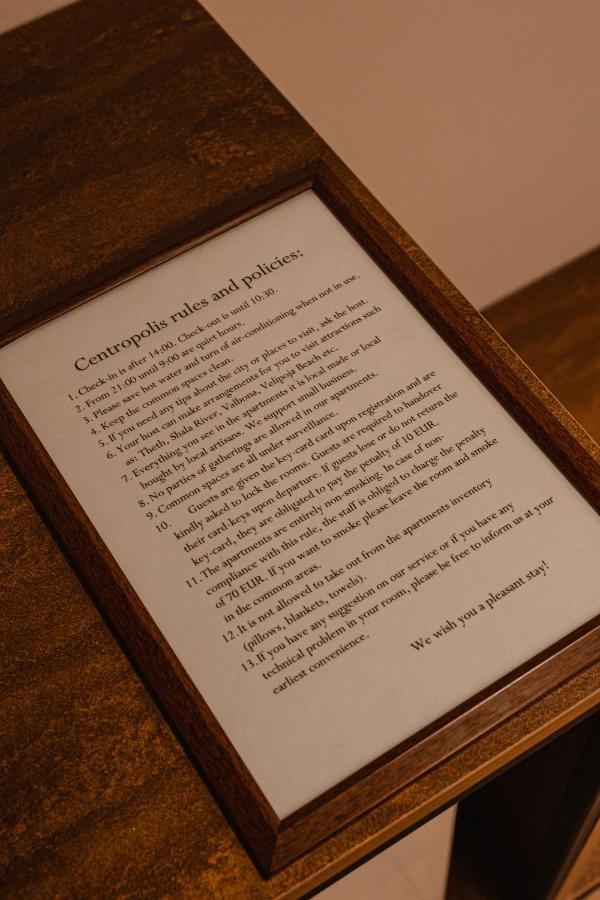 Centropolis rules and policies:
1. Check-in is after 14:00. Check-out is until 10:30.
2. From 21:00 until 9:00 are quiet hours.
3. Please save hot water and turn of air-conditioning when not in use.
4. Keep the common spaces clean.
5. If you need any tips about the city or places to visit, ask the host.
6. Your host can make arrangements for you to visit attractions such
as: Theth, Shala River, Valbona, Velipoja Beach etc.
7. Everything you see in the apartments it is local made or local
bought by local artisans. We support small business.
8. No parties of gatherings are allowed in our apartments.
9. Common spaces are all under surveillance.
10. Guests are given the key-card upon registration and are
kindly asked to lock the rooms. Guests are required to handover
their card-keys upon departure. If guests lose or do not return the
key-card, they are obligated to pay the penalty of 10 EUR.
11. The apartments are entirely non-smoking. In case of non-
compliance with this rule, the staff is obliged to charge the penalty
of 70 EUR. If you want to smoke please leave the room and smoke
in the common areas.
12. It is not allowed to take out from the apartments inventory
(pillows, blankets, towels).
13. If you have any suggestion on our service or if you have any
technical problem in your room, please be free to inform us at your
earliest convenience.
We wish you a pleasant stay!